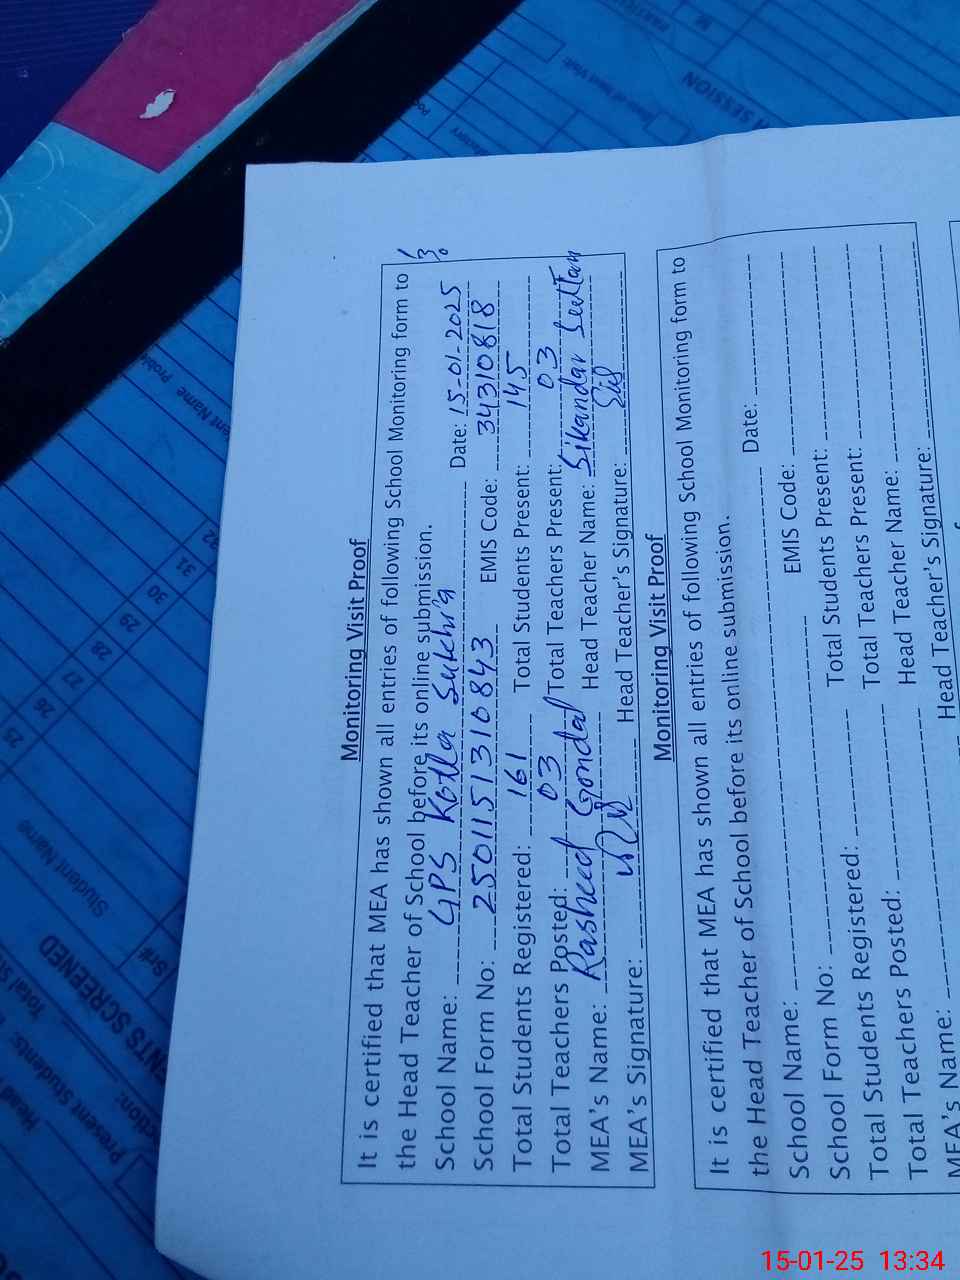 Monitoring Visit Proof
It is certified that MEA has shown all entries of following School Monitoring form to
the Head Teacher of School before its online submission.
School Name: GPS Kotla Sukhi'a Date: 15-01-2025
School Form No: 2501151310843 EMIS Code: 34310818
Total Students Registered: 161 Total Students Present: 145
Total Teachers Posted: 03 Total Teachers Present: 03
MEA's Name: Rasheed Gondal Head Teacher Name: Sikandar Sultan
MEA's Signature: Head Teacher's Signature:
Monitoring Visit Proof
It is certified that MEA has shown all entries of following School Monitoring form to
the Head Teacher of School before its online submission.
School Name: Date:
School Form No: EMIS Code:
Total Students Registered: Total Students Present:
Total Teachers Posted: Total Teachers Present:
MEA's Name: Head Teacher Name:
Head Teacher's Signature:
SESSION
Student Name
25 26 27 28 29 30 31 32
Present Students:
15-01-25 13:34